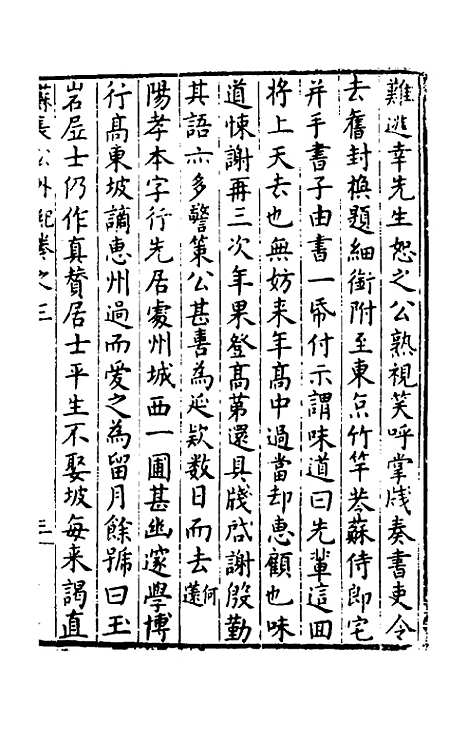 難逃幸先生恕之公熟視笑呼掌牋奏書吏令
去舊封換題細銜附至東京竹竿巷蘇侍郎宅
并手書子由書一帋付示謂味道曰先輩這回
將上天去也無妨来年高中過當却惠顧也味
道悚謝再三次年果登高第還具牋啓謝殷勤
其語亦多警策公甚喜為延欵數日而去何薳
陽孝本字行先居處州城西一圃甚幽邃學博
行高東坡謫惠州過而愛之為留月餘號曰玉
岩居士仍作真賛居士平生不娶坡每来謁直
蘇長公外紀卷之三
三